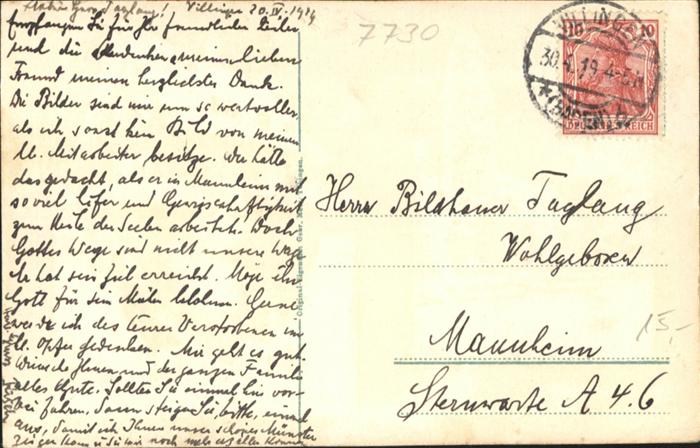 Villingen 30.IV.1919
Empfangen Sie für Ihre freundlichen Zeilen
und die Andenken meines lieben
Freund meinen herzlichsten Dank.
Die Bilder sind mir um so wertvoller,
als ich sonst kein Bild von meinem
Mitarbeiter besitze. Wer hätte
das gedacht, als er in Mannheim mit
so viel Eifer und Gewissenhaftigkeit
zum Heile der Seelen arbeitete. Doch
Gottes Wege sind nicht unsere Wege
Er hat sein Ziel erreicht. Möge ihn
Gott für sein Mühen belohnen. Gerne
werde ich des teuren Verstorbenen im
hl. Opfer gedenken. Mir geht es gut.
Wünsche Ihnen und der ganzen Familie
alles Gute. Sollten Sie einmal hier vor-
bei fahren, dann steigen Sie, bitte, einmal
aus, damit ich Ihnen unser schönes Münster
zeigen kann
7730
VILLINGEN
30.4.19.4-5N
* (BADEN)
10 10
DEUTSCHES REICH
Herrn Bildhauer Taglang
Wohlgeboren
Mannheim
Sternwarte A 4 6
15,-